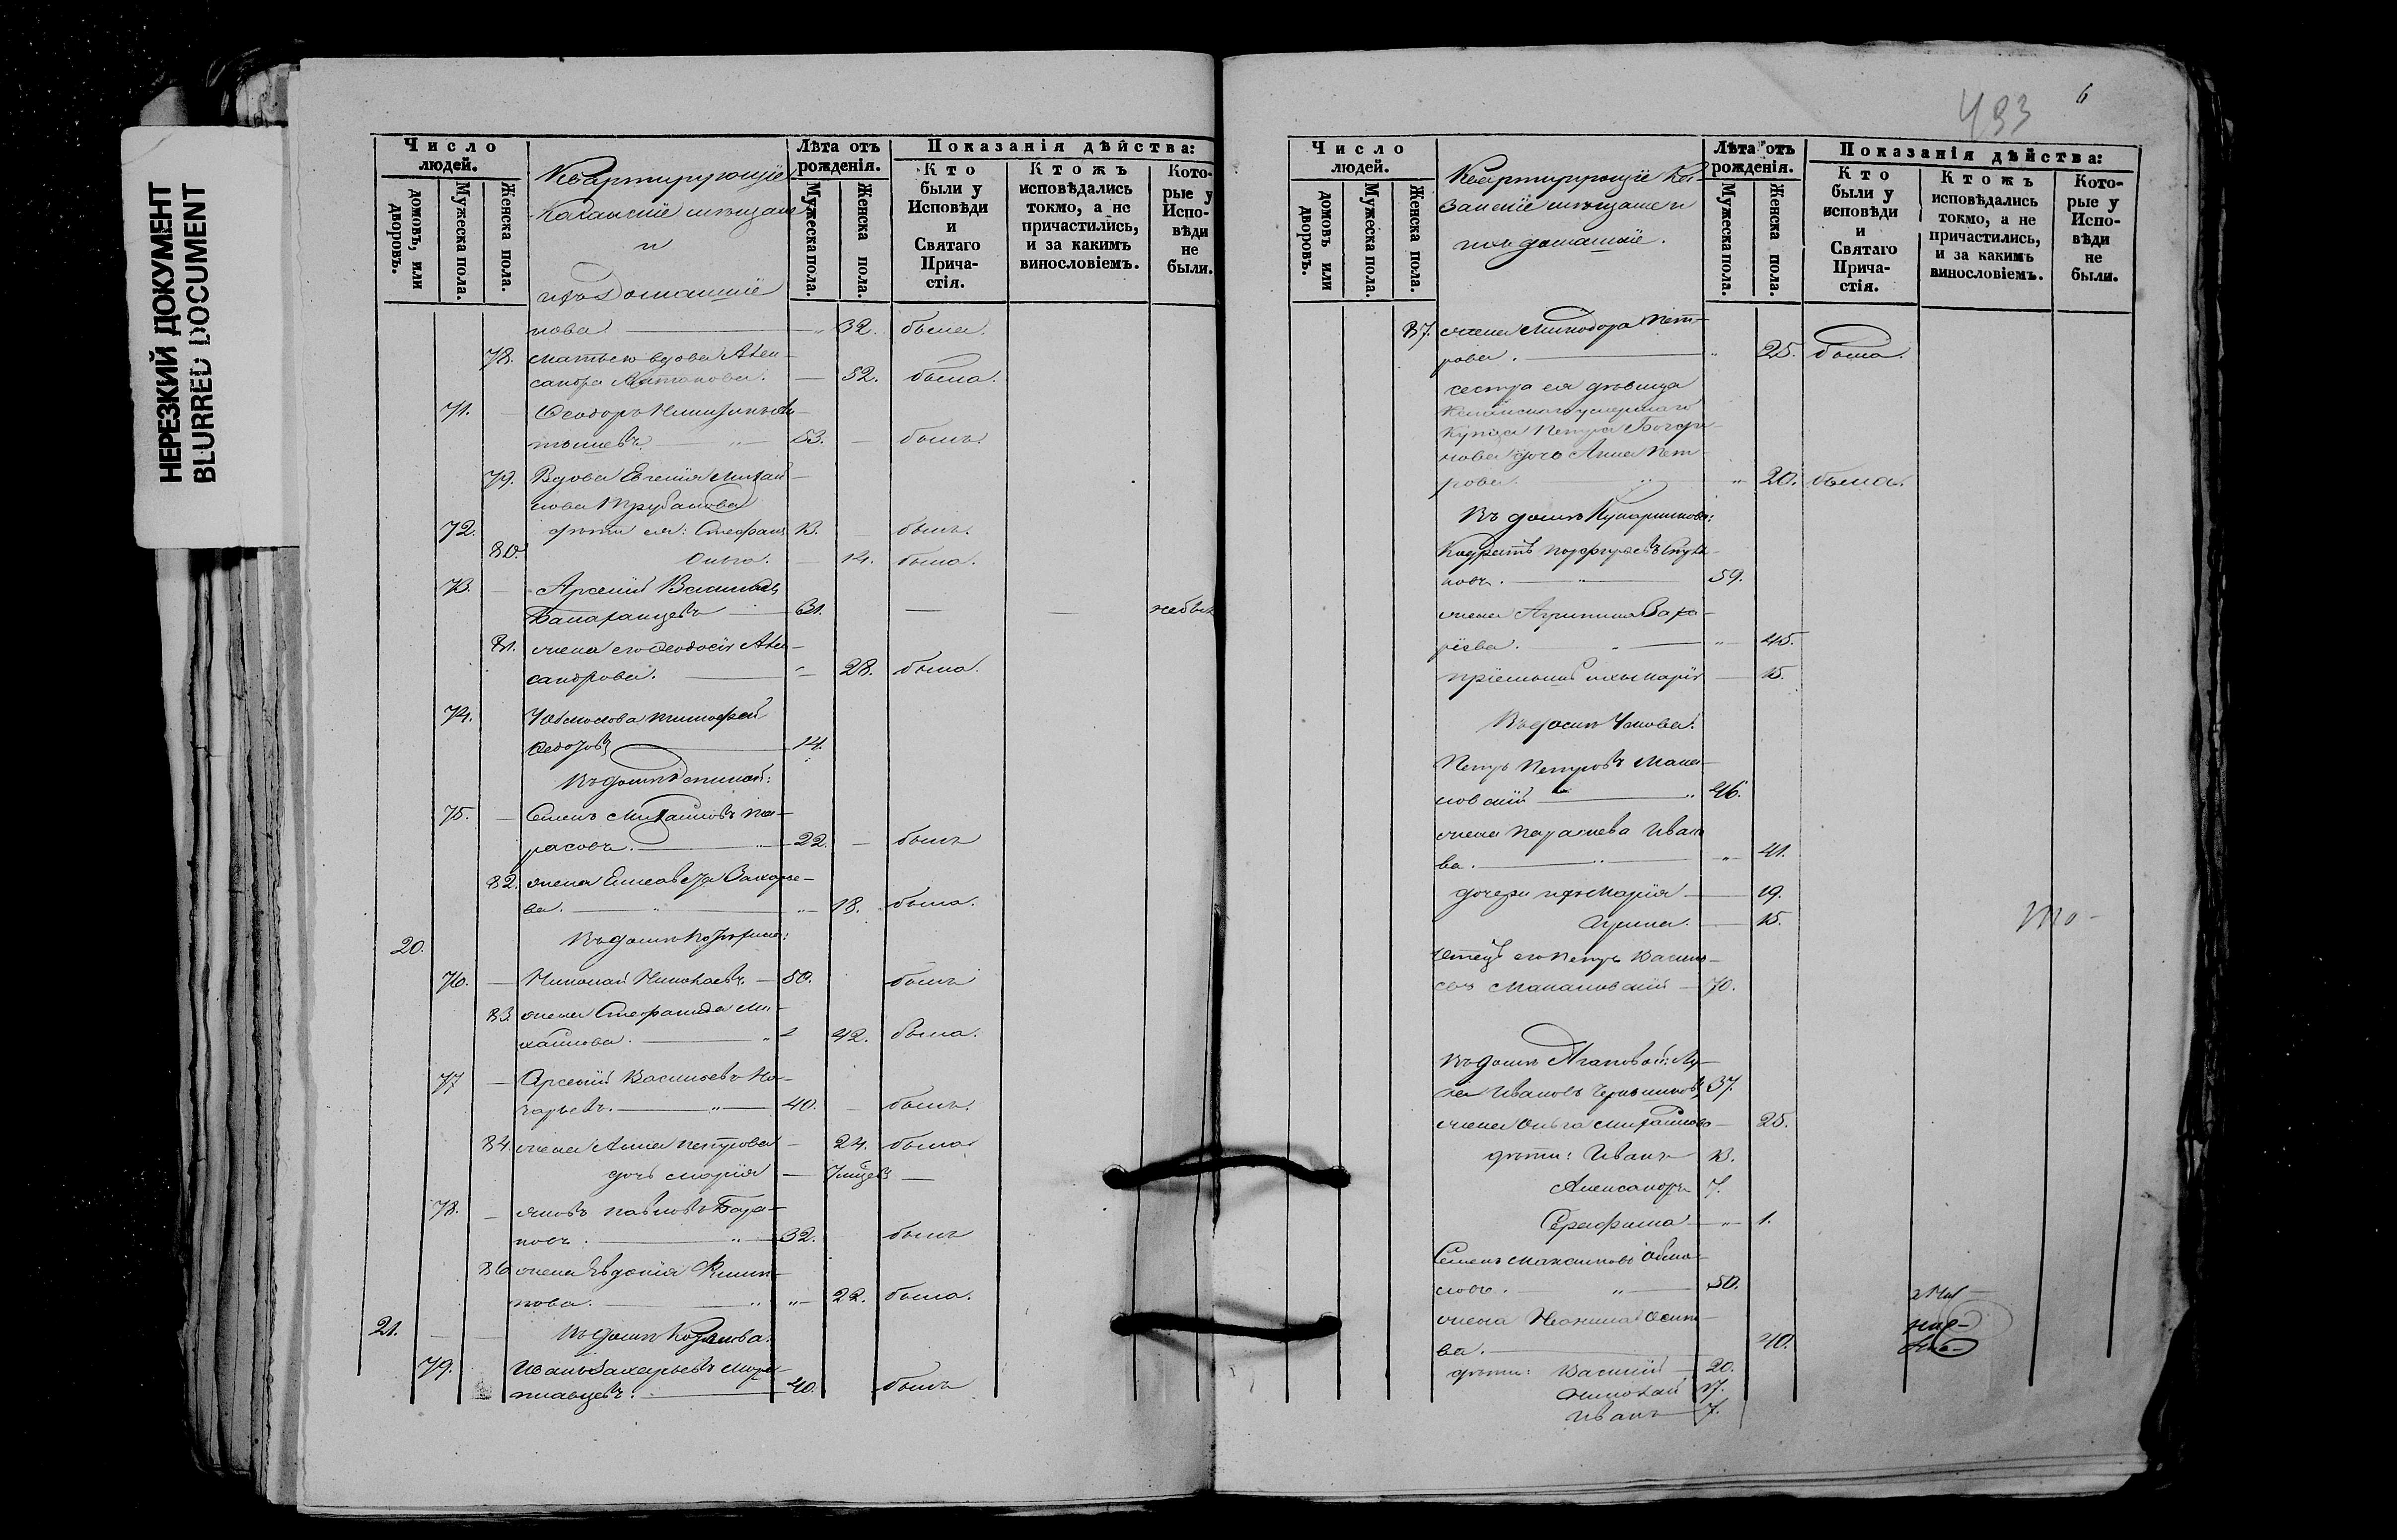 НЕРЕЗКИЙ ДОКУМЕНТ
BLURRED DOCUMENT
Число
людей.
домовъ, или
дворовъ.
Мужеска пола.
Женска пола.
Квартирующіе
Казанскіе мѣщане
и
ихъ домашніе
Лѣта отъ
рожденія.
Мужеска пола.
Женска пола.
Показанія дѣйства:
Кто
были у
Исповѣди
и
Святаго
Прича-
стія.
Ктожъ
исповѣдались
токмо, а не
причастились,
и за какимъ
винословіемъ.
Кото-
рые у
Испо-
вѣди
не
были.
нова 32. была.
78. мать его вдова Алек-
сандра Антонова. 52. была.
71. Ѳеодоръ
53. былъ
79. Вдова Евгенія Михай-
лова Трубанова
72. дѣти ея: Стефанъ 13. былъ.
80. Ольга. 14. была.
73. Арсеній Васильевъ
31. небылъ
81. жена его Ѳеодосія Алек-
сандрова. 28. была.
74. Тимофей
Ѳедоровъ 14.
Въ домѣ
75. Семенъ Михайловъ
22. былъ
82. жена Елисавета Захарье-
ва. 18. была.
20. Въ домѣ
76. Николай Николаевъ 50. былъ
83. жена Стефанида Ми-
хайлова. 42. была.
77 Арсеній Васильевъ
40. былъ.
84. жена Анна Петрова 24. была
дочь Марія
78. Яковъ Павловъ Бара-
новъ. 32. былъ
86 жена Евдокія Филип-
пова. 22. была.
21. Въ домѣ Козлова.
79. Иванъ Захарьевъ
40. былъ
493
6
Число
людей.
домовъ или
дворовъ.
Мужеска пола.
Женска пола.
Квартирующіе Ка-
занскіе мѣщане и
ихъ домашніе.
Лѣта отъ
рожденія.
Мужеска пола.
Женска пола.
Показанія дѣйства:
Кто
были у
исповѣди
и
Святаго
Прича-
стія.
Ктожъ
исповѣдались
токмо, а не
причастились,
и за какимъ
винословіемъ.
Кото-
рые у
Испо-
вѣди
не
были.
87. жена Минодора Пет-
рова. 25. была.
сестра ея дѣвица
умершаго
купца Петра
дочь Анна Пет-
рова. 20. была.
Въ домѣ
Порфирьевъ
59.
жена Агрипина Заха-
рьева. 45.
15.
Въ домѣ
Петръ Петровъ Мака-
ловскій 46.
жена Параскева Ивано
ва. 41.
дочери ихъ Марія 19.
Ирина. 15.
Отецъ его Петръ Василь-
евъ 70.
Въ домѣ Агаповой: Лу-
ка Ивановъ 37.
жена Ольга Михайлова 25.
дѣти: Иванъ 13.
Александръ 7.
Серафима 1.
Семенъ Максимовъ
50.
жена Неонила Осипо
ва. 40.
дѣти: Василій 20.
Николай 17.
Иванъ 7.